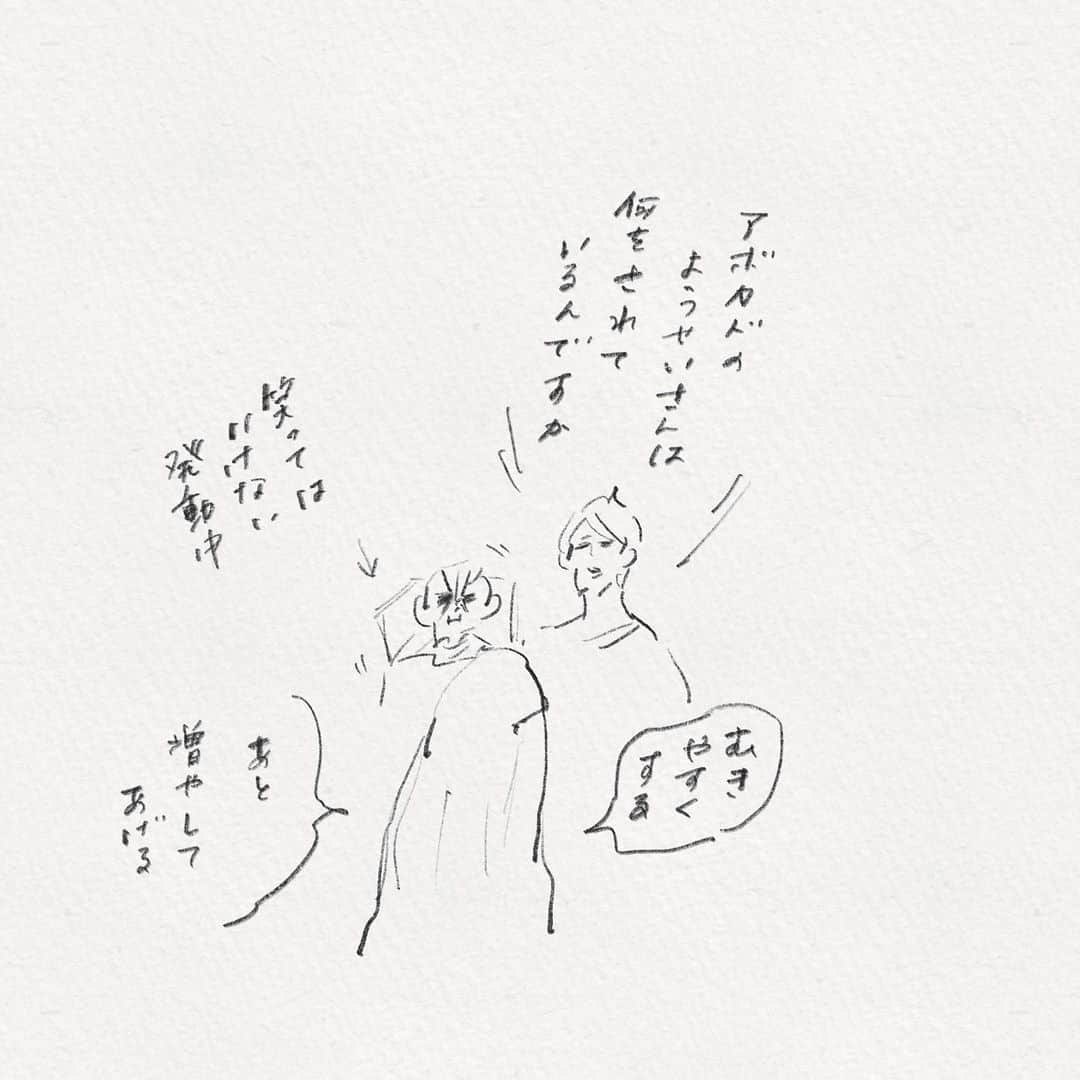 アボカドの
ようせいさんは
何をされて
いるんですか
笑っては
いけない
発動中
むき
やすく
する
あと
増やして
あげる